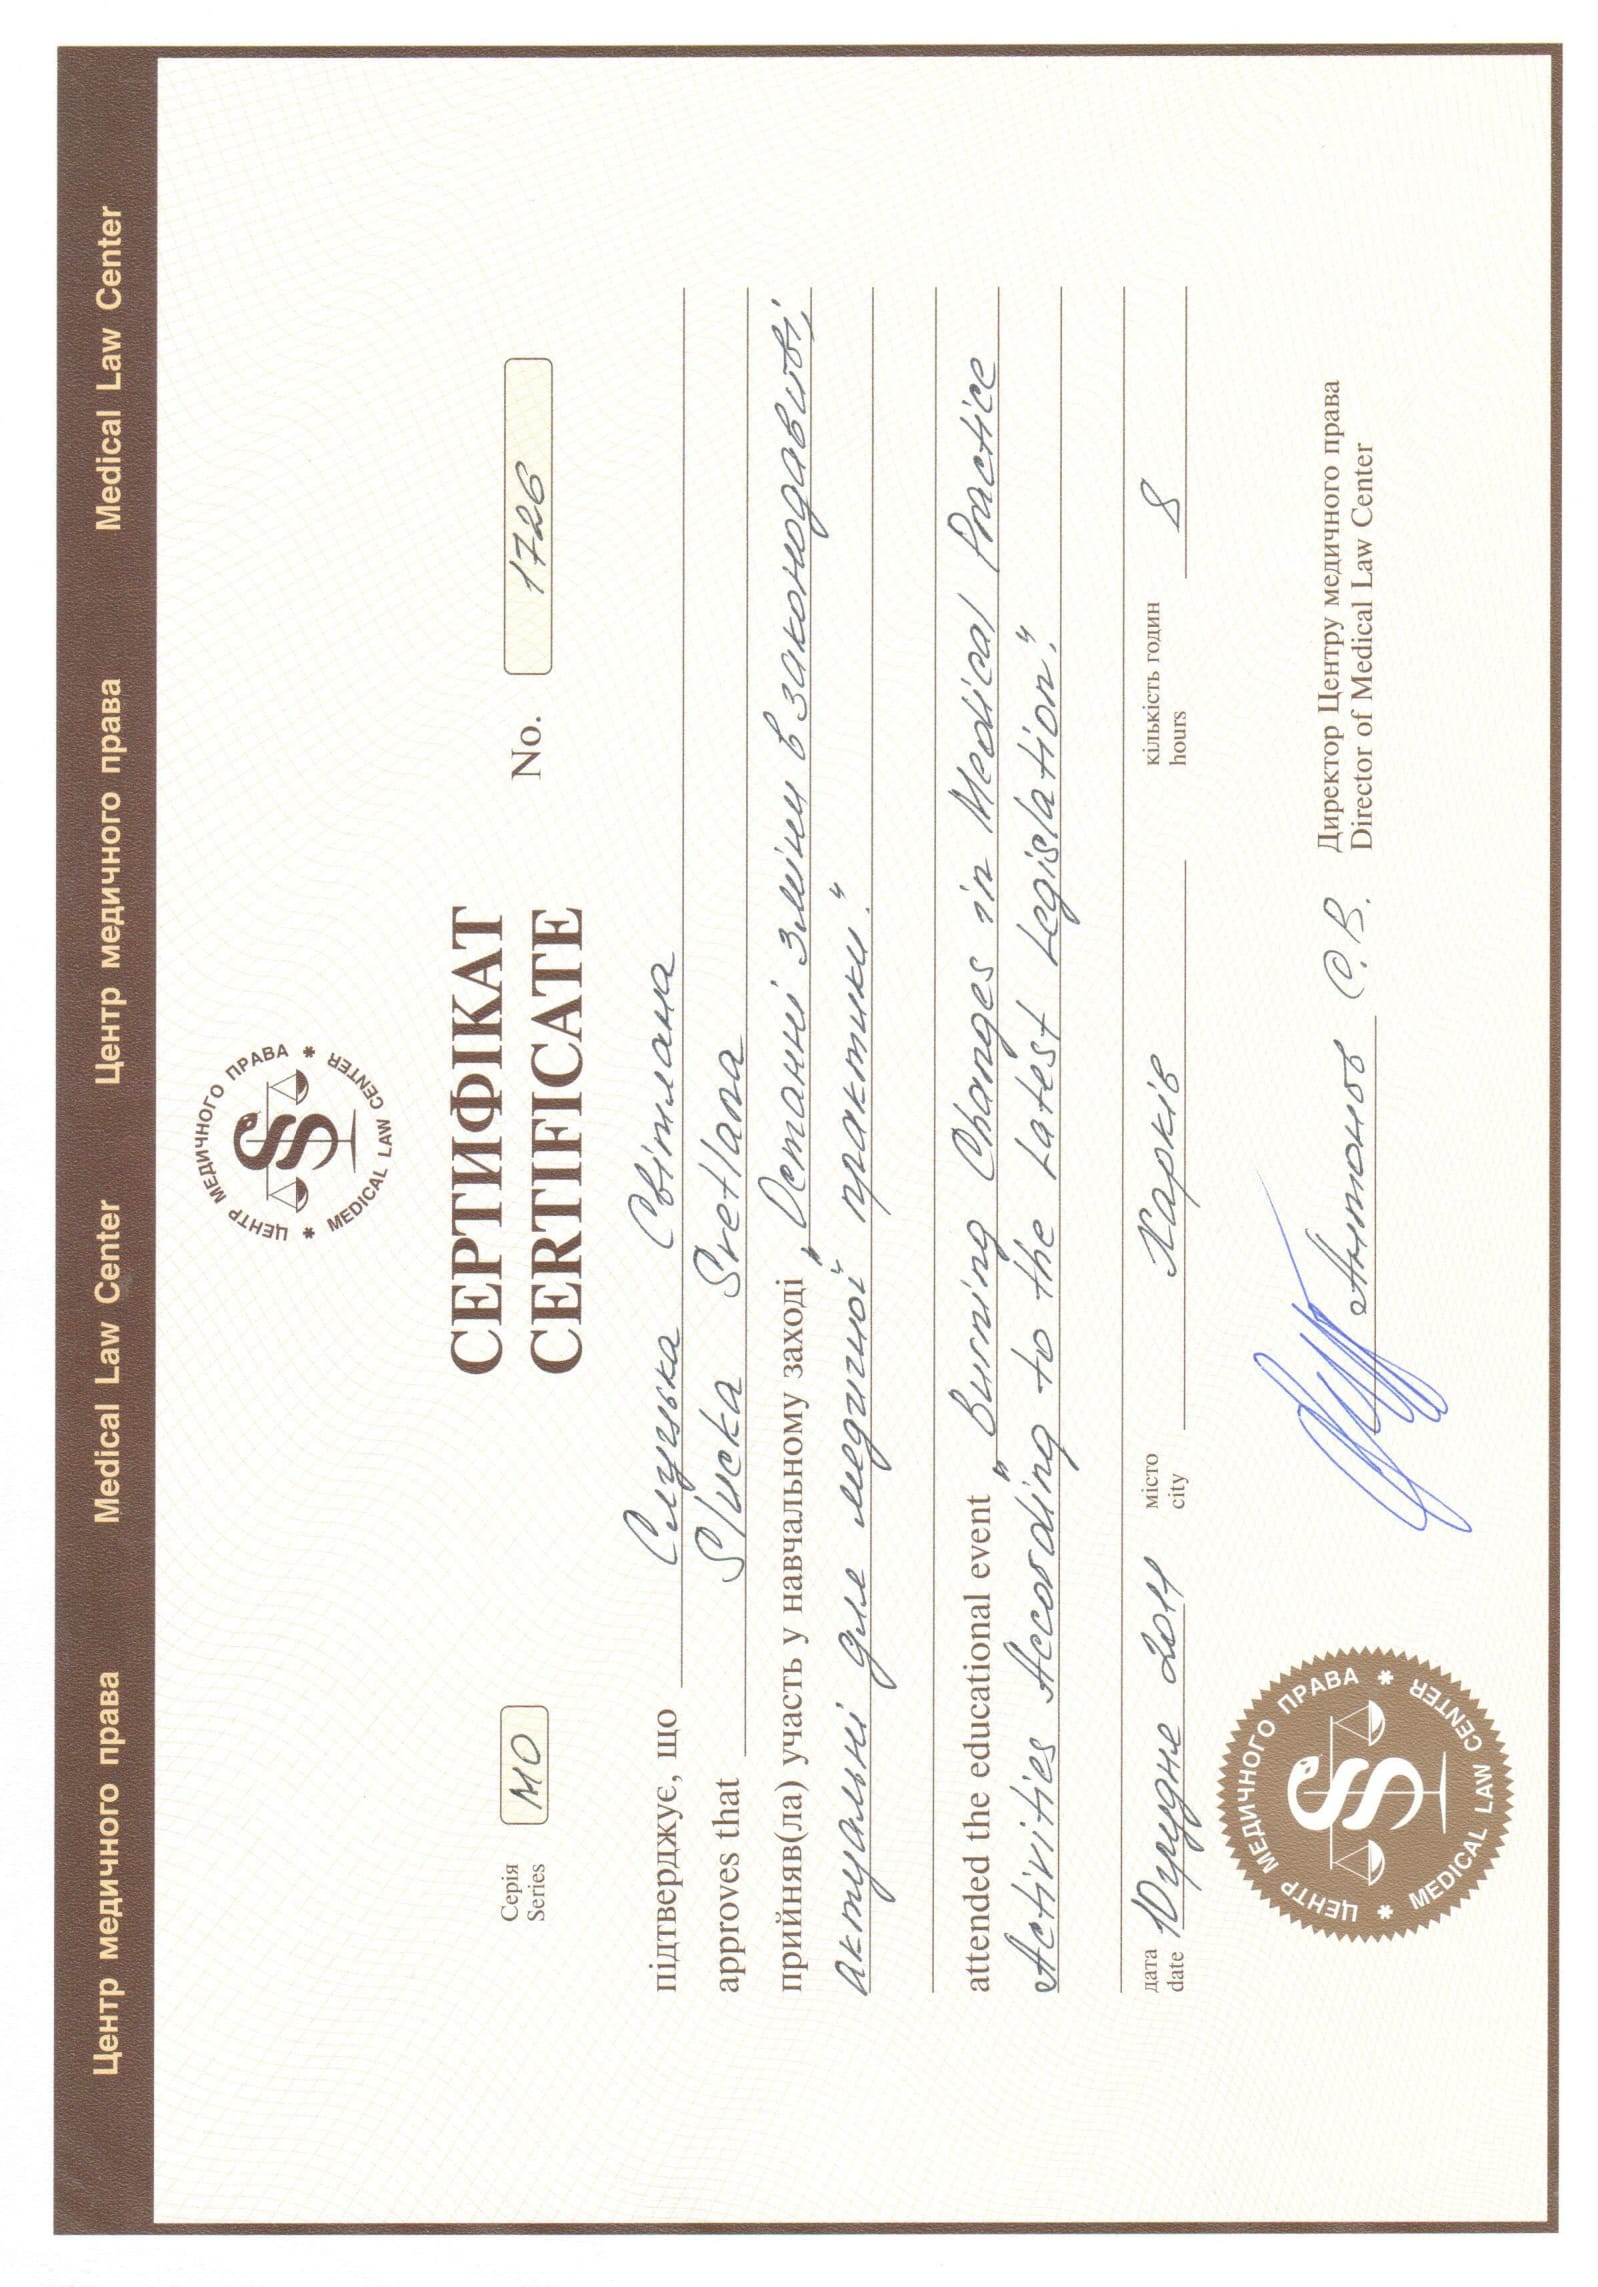 Центр медичного права Medical Law Center Центр медичного права Medical Law Center
ЦЕНТР МЕДИЧНОГО ПРАВА * MEDICAL LAW CENTER *
СЕРТИФІКАТ
CERTIFICATE
Серія
Series
МО
No. 1726
підтверджує, що Слуцька Світлана
approves that Slucka Svetlana
прийняв(ла) участь у навчальному заході „Останні зміни в законодавстві,
актуальні для медичної практики."
attended the educational event „Burning Changes in Medical Practice
Activities According to the Latest Legislation."
дата
date
10 грудня 2011
місто
city
Харків
кількість годин
hours
8
ЦЕНТР МЕДИЧНОГО ПРАВА * MEDICAL LAW CENTER *
Антонов С.В.
Директор Центру медичного права
Director of Medical Law Center